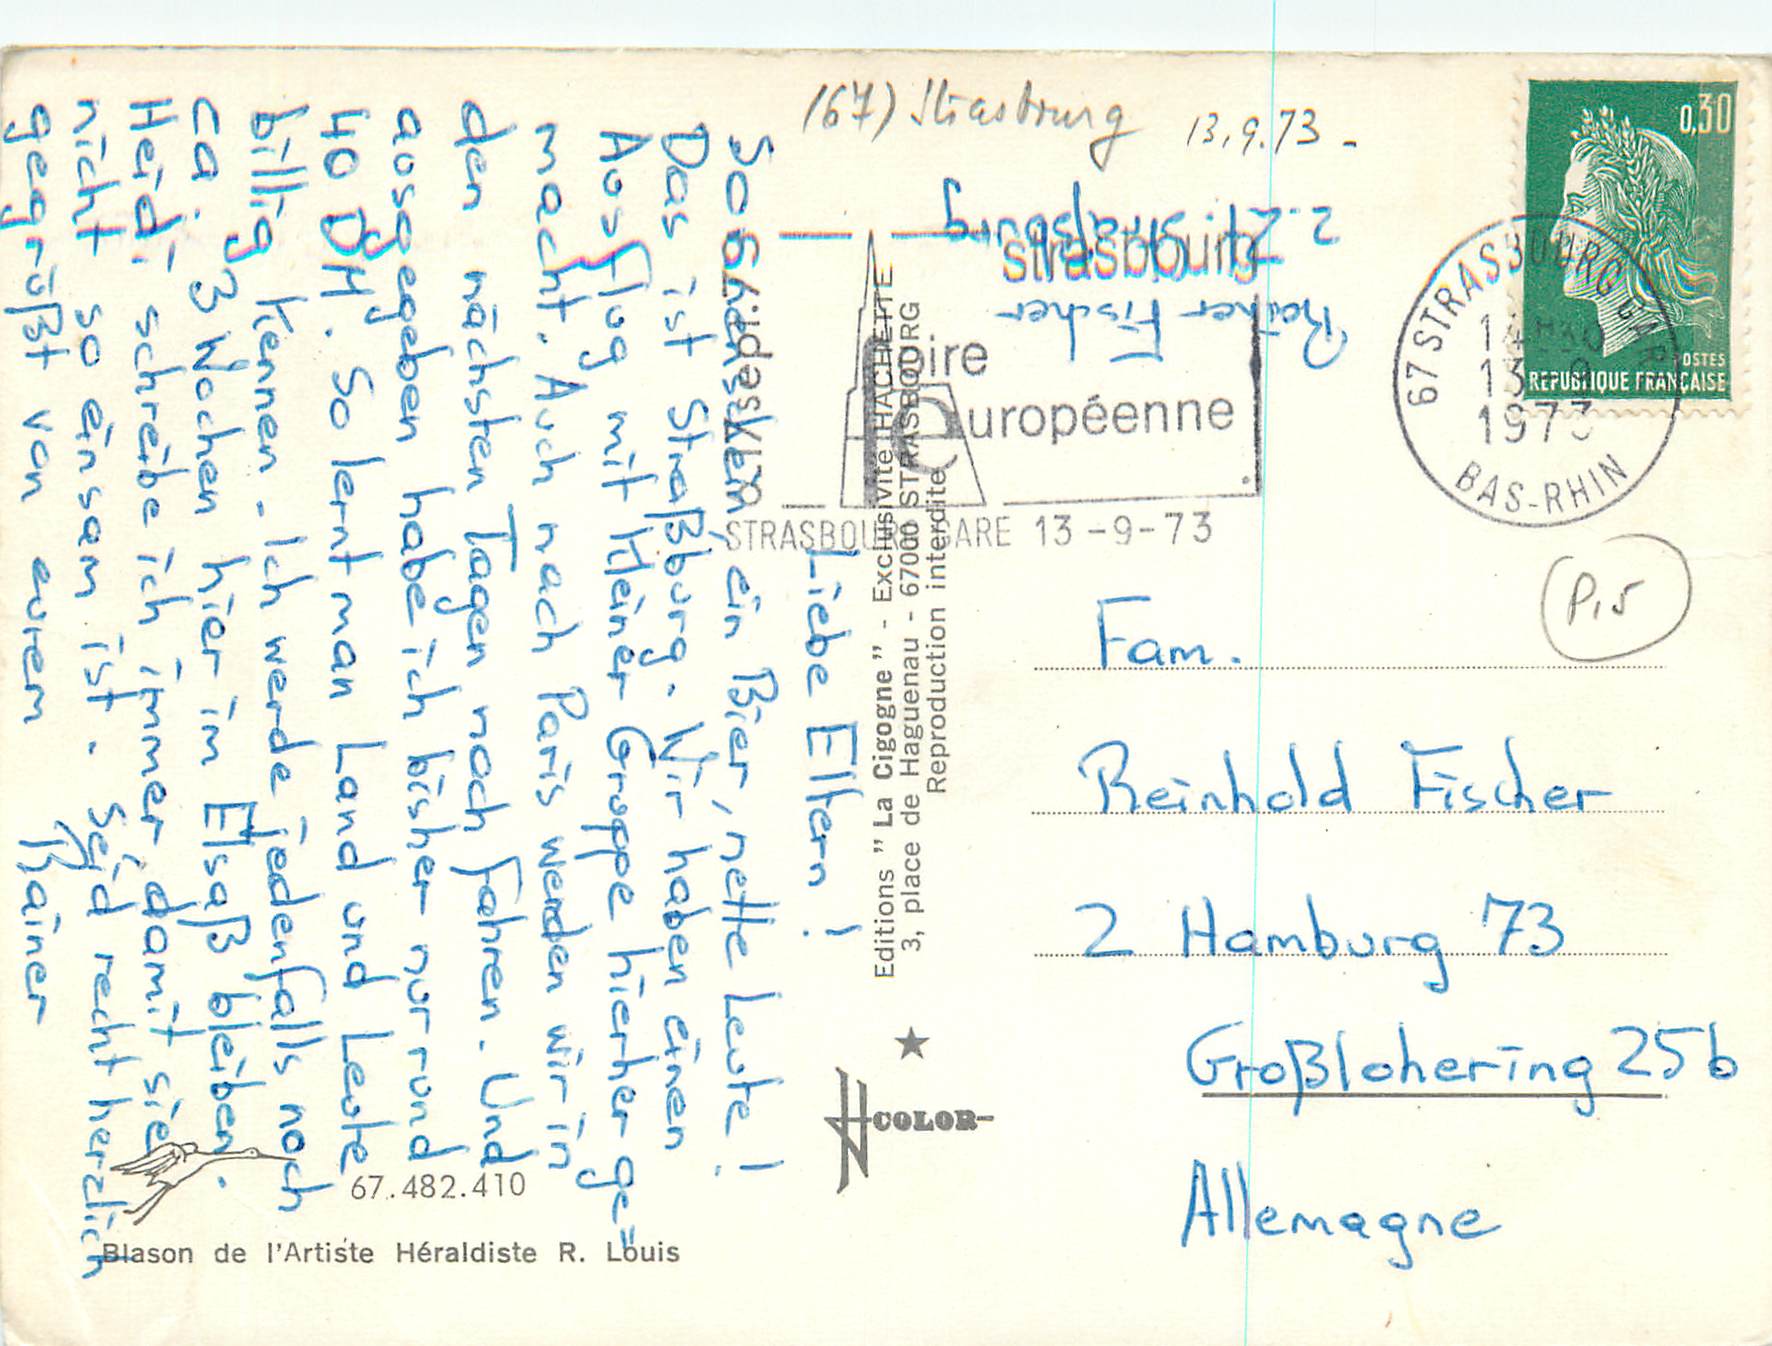 (67) Strasbourg 13.9.73 -
0,30
POSTES
REPUBLIQUE FRANÇAISE
67 STRASBOURG GARE
13 9
1973
BAS-RHIN
strasbourg
foire
européenne
STRASBOURG GARE 13-9-73
Fischer
z.Zt. Straßburg
Liebe Eltern!
ein Bier, nette Leute!
Das ist Straßburg. Wir haben einen
Ausflug mit kleiner Gruppe hierher ge=
macht. Auch nach Paris werden wir in
den nächsten Tagen noch fahren. Und
ausgegeben habe ich bisher nur rund
40 DM. So lernt man Land und Leute
billig kennen - Ich werde jedenfalls noch
ca. 3 Wochen hier im Elsaß bleiben.
Heidi schreibe ich immer, damit sie
nicht so einsam ist. Seyd recht herzlich
gegrüßt von eurem Rainer
Editions " La Cigogne " - Exclusivité HACHETTE
3, place de Haguenau - 67000 STRASBOURG
Reproduction interdite
COLOR
P,5
Fam.
Reinhold Fischer
2 Hamburg 73
Großlohering 25b
Allemagne
67.482.410
Blason de l'Artiste Héraldiste R. Louis